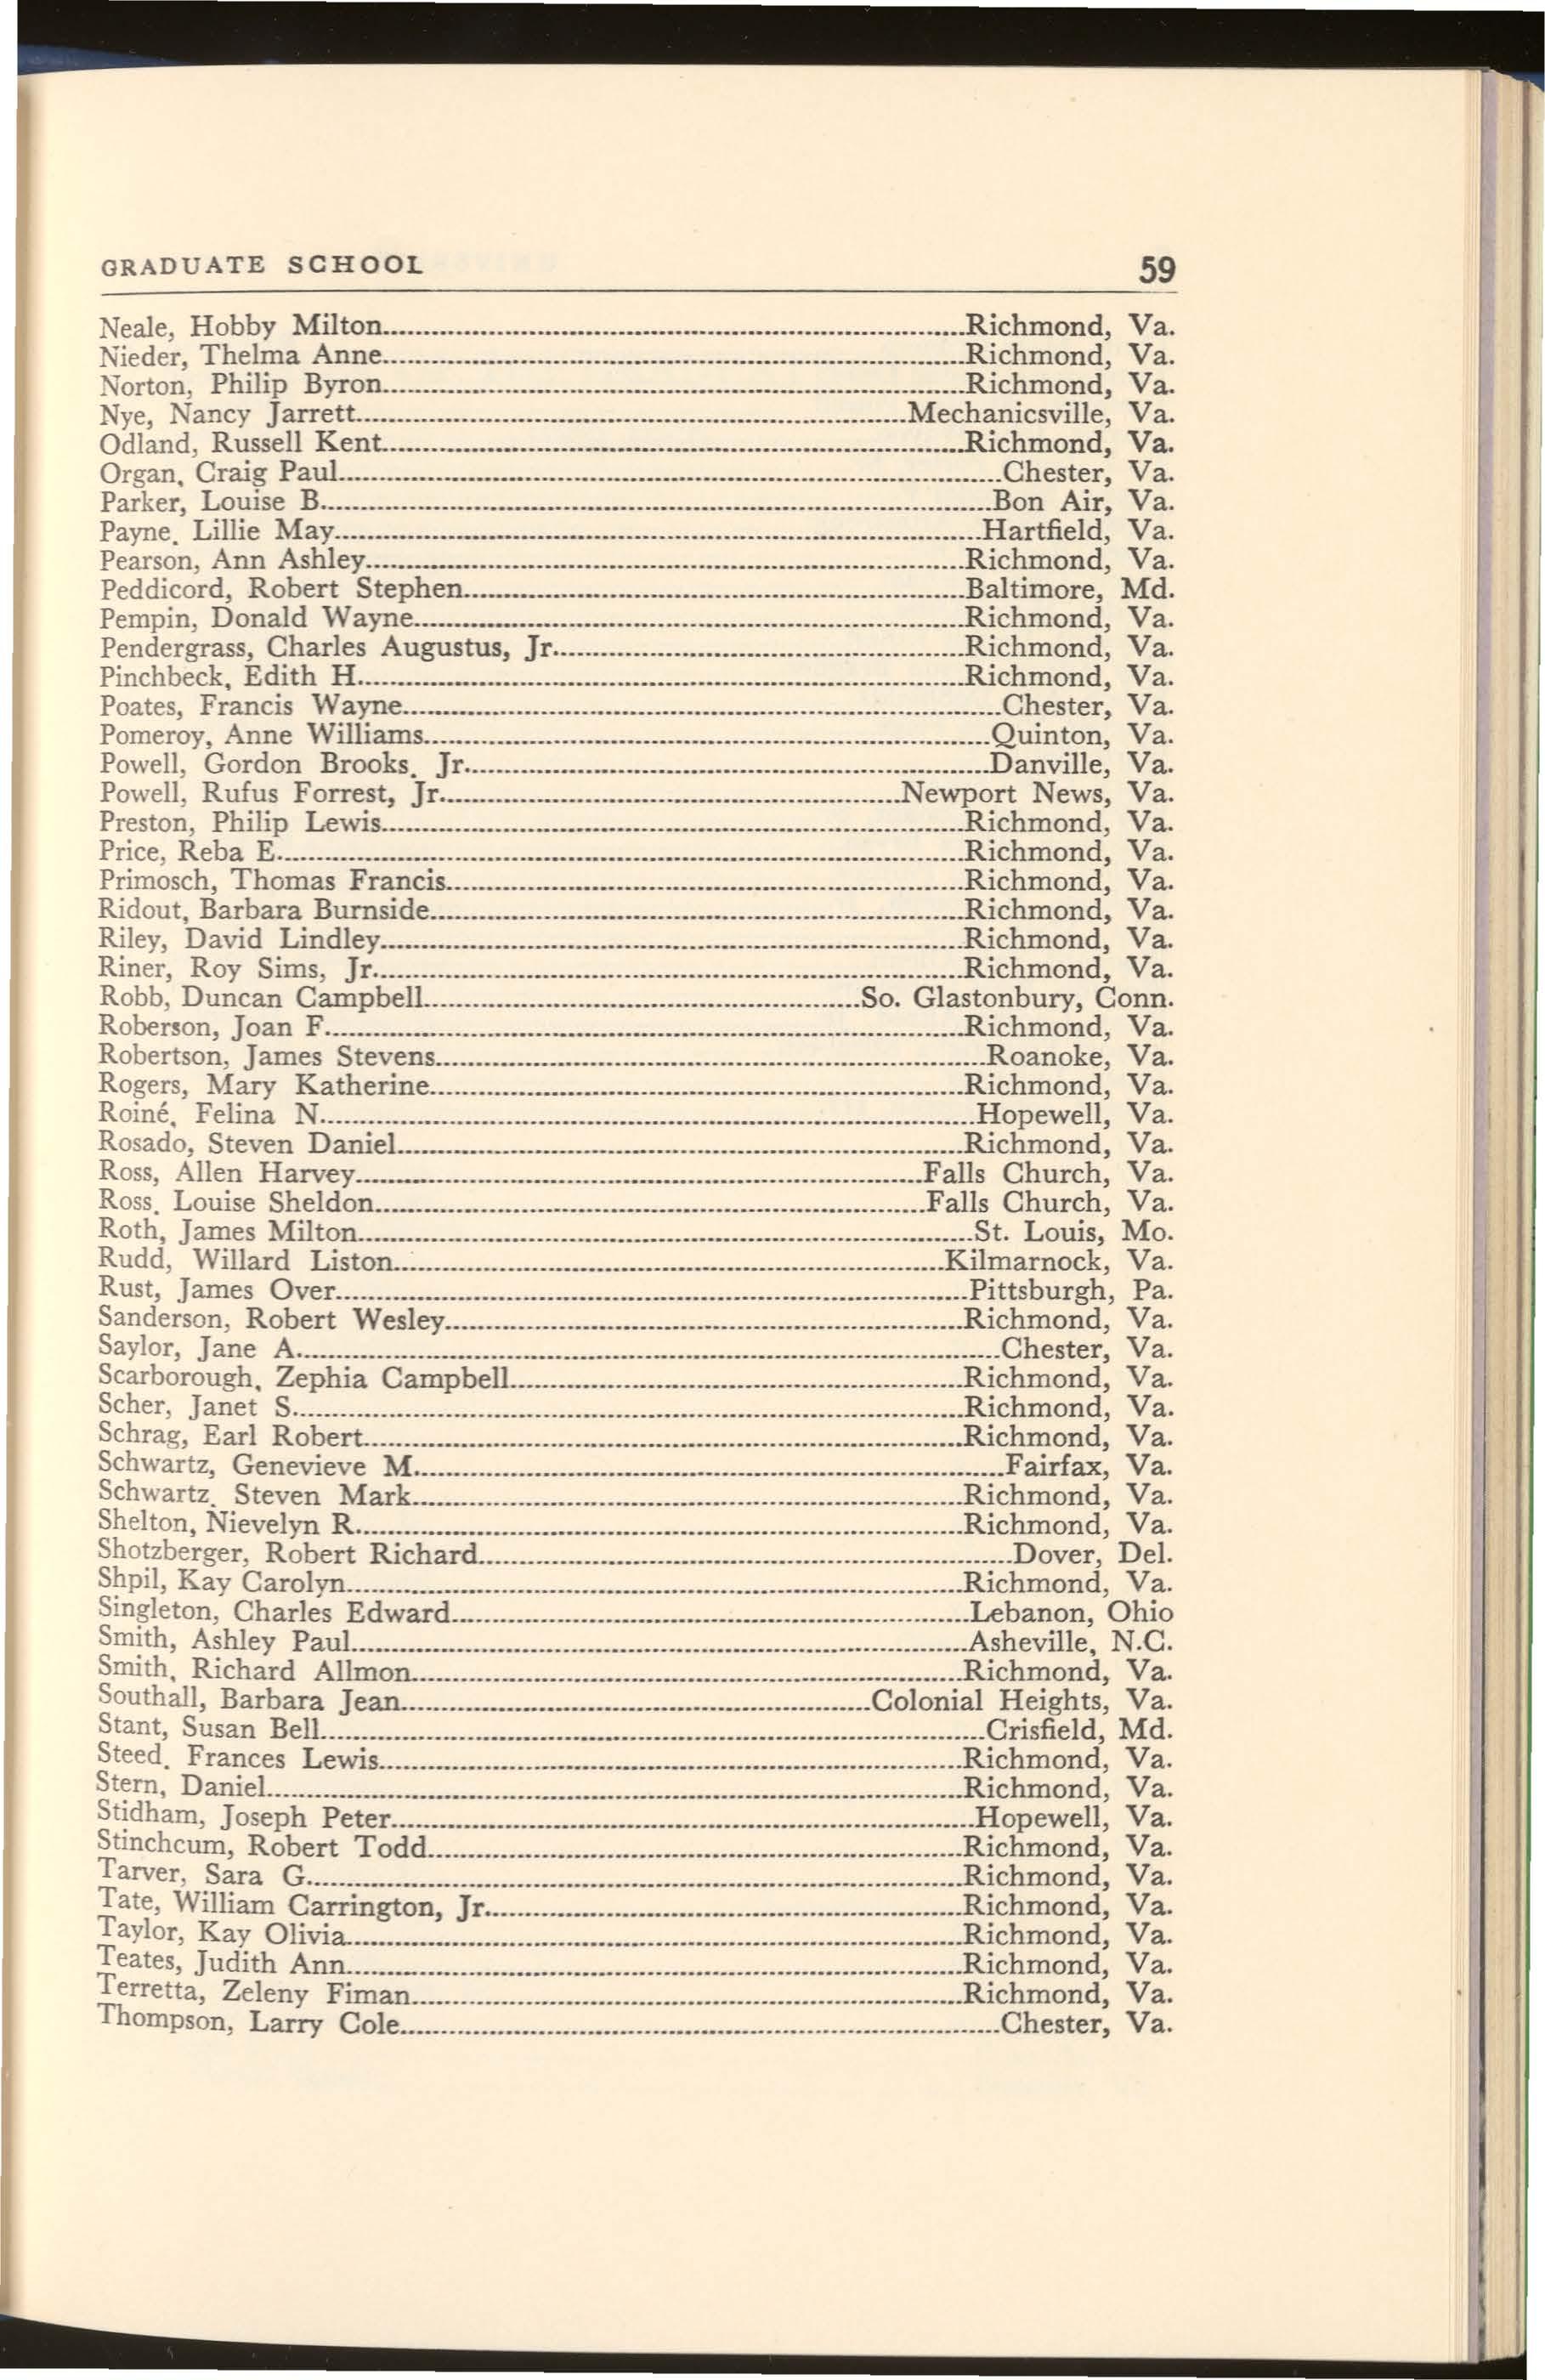 GRADUATE SCHOOL 59
Neale, Hobby Milton Richmond, Va.
Nieder, Thelma Anne Richmond, Va.
Norton, Philip Byron Richmond, Va.
Nye, Nancy Jarrett Mechanicsville, Va.
Odland, Russell Kent Richmond, Va.
Organ, Craig Paul Chester, Va.
Parker, Louise B. Bon Air, Va.
Payne, Lillie May Hartfield, Va.
Pearson, Ann Ashley Richmond, Va.
Peddicord, Robert Stephen Baltimore, Md.
Pempin, Donald Wayne Richmond, Va.
Pendergrass, Charles Augustus, Jr. Richmond, Va.
Pinchbeck, Edith H. Richmond, Va.
Poates, Francis Wayne Chester, Va.
Pomeroy, Anne Williams Quinton, Va.
Powell, Gordon Brooks, Jr. Danville, Va.
Powell, Rufus Forrest, Jr. Newport News, Va.
Preston, Philip Lewis Richmond, Va.
Price, Reba E. Richmond, Va.
Primosch, Thomas Francis Richmond, Va.
Ridout, Barbara Burnside Richmond, Va.
Riley, David Lindley Richmond, Va.
Riner, Roy Sims, Jr. Richmond, Va.
Robb, Duncan Campbell So. Glastonbury, Conn.
Roberson, Joan F. Richmond, Va.
Robertson, James Stevens Roanoke, Va.
Rogers, Mary Katherine Richmond, Va.
Roiné, Felina N. Hopewell, Va.
Rosado, Steven Daniel Richmond, Va.
Ross, Allen Harvey Falls Church, Va.
Ross, Louise Sheldon Falls Church, Va.
Roth, James Milton St. Louis, Mo.
Rudd, Willard Liston Kilmarnock, Va.
Rust, James Over Pittsburgh, Pa.
Sanderson, Robert Wesley Richmond, Va.
Saylor, Jane A. Chester, Va.
Scarborough, Zephia Campbell Richmond, Va.
Scher, Janet S. Richmond, Va.
Schrag, Earl Robert Richmond, Va.
Schwartz, Genevieve M. Fairfax, Va.
Schwartz, Steven Mark Richmond, Va.
Shelton, Nievelyn R. Richmond, Va.
Shotzberger, Robert Richard Dover, Del.
Shpil, Kay Carolyn Richmond, Va.
Singleton, Charles Edward Lebanon, Ohio
Smith, Ashley Paul Asheville, N.C.
Smith, Richard Allmon Richmond, Va.
Southall, Barbara Jean Colonial Heights, Va.
Stant, Susan Bell Crisfield, Md.
Steed, Frances Lewis Richmond, Va.
Stern, Daniel Richmond, Va.
Stidham, Joseph Peter Hopewell, Va.
Stinchcum, Robert Todd Richmond, Va.
Tarver, Sara G. Richmond, Va.
Tate, William Carrington, Jr. Richmond, Va.
Taylor, Kay Olivia Richmond, Va.
Teates, Judith Ann Richmond, Va.
Terretta, Zeleny Fiman Richmond, Va.
Thompson, Larry Cole Chester, Va.